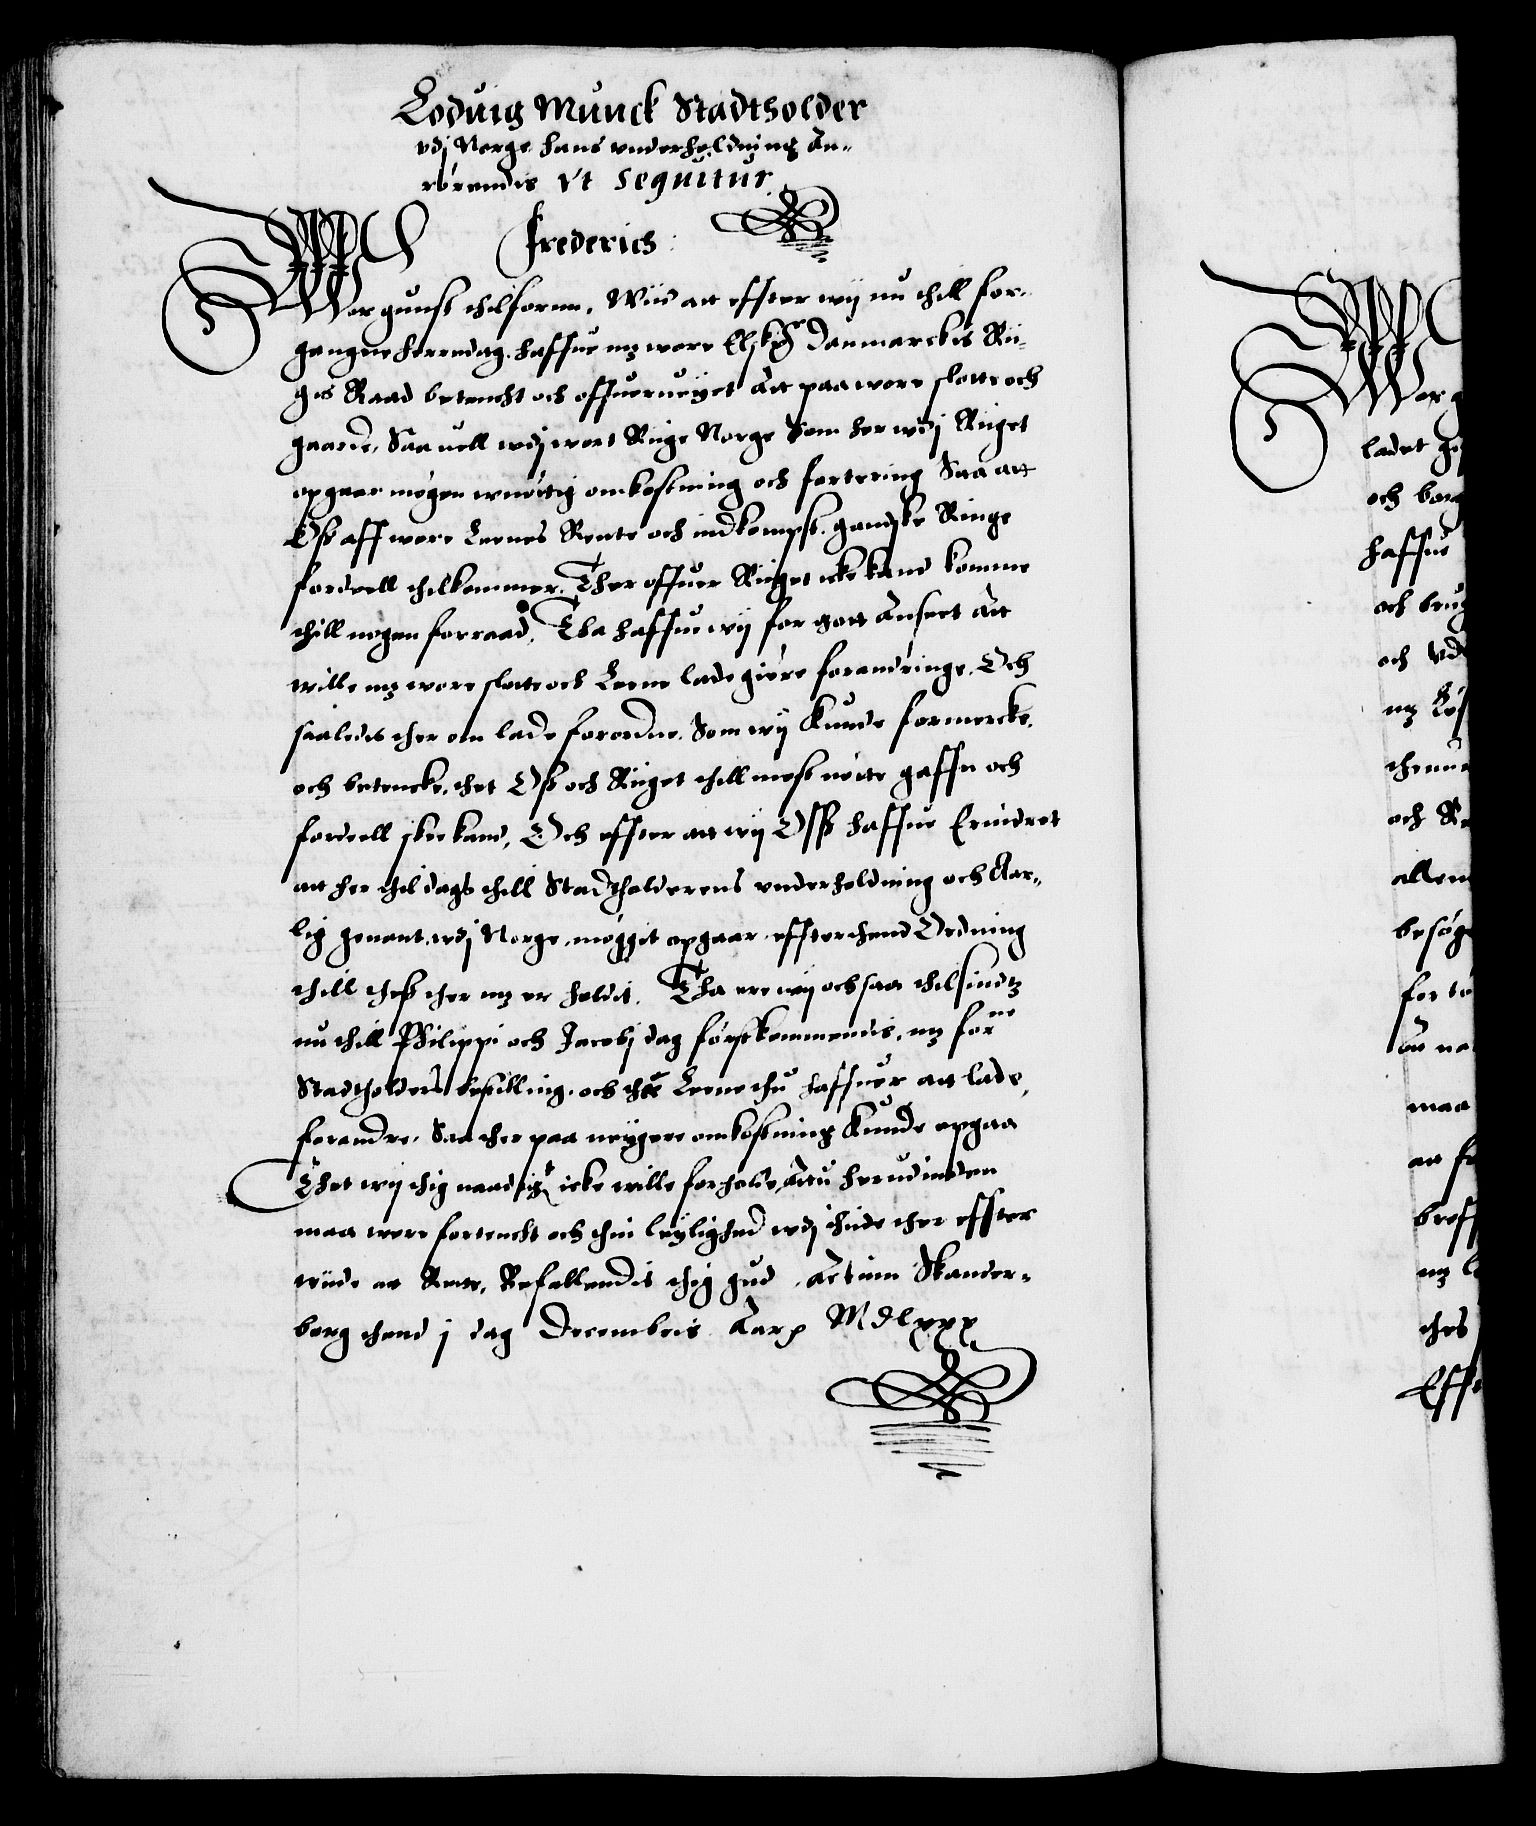 Loduig Munck Stadtholder
vdj Norge hans vnderholdning An-
rørendis Vt sequitur
Frederich
Wor gunst thilfornn, Wiis att effter wij nu thill for-
gangne herredag haffue mz wore Elsk: Danmarckis Rii-
gis Raad betencht och offuerueyet Att paa wore slotte och
gaarde, Saauell wdj wort Riige Norge Som her wdj Riiget
opgaar mögen wnöttig omkostning och fortering Saa att
Oss aff wore Leenes Rente och indkompst gandske Ringe
fordeell thilkommer. Ther offuer Riiget icke kand komme
thill nogen forraad, Tha haffue wij for gott Anseet Att
wille mz wore slotte och Leene lade giöre forandringe, Och
saaledis ther om lade forordne, Som wij kunde formercke,
och betencke, thet Oss och Riiget thill mest nötte gaffn och
fordeell skee kand, Och effter att wij Oss haffue Erindret
att her thil dags thill Stadtholderens vnderholdning och Aar-
lig genant, wdj Norge, mögget opgaar, effter thend Ordning
thill thess ther mz er holdet, Tha ere wij och saa thilsindtz
nu thill Philippi och Jacobj dag förstkommendis, mz forne
Stadtholders bestilling, och the Leene thu haffuer att lade
forandre, Saa ther paa ringere omkostning kunde opgaa
Thet wij thig naadigt icke wille forholde, Att du herudinden
maa were fortencht och thin leylighed wdj thide ther effter
wiide at Rette, Befallendis thig gud, Actum Skander-
borg thend j dag Decembris Aar &c. MDlxxx
Wor g
ladet
och
haffue
och brug
och vd
mz
och
allem
besög
for
maa
att
breff
mz
thes
Effter